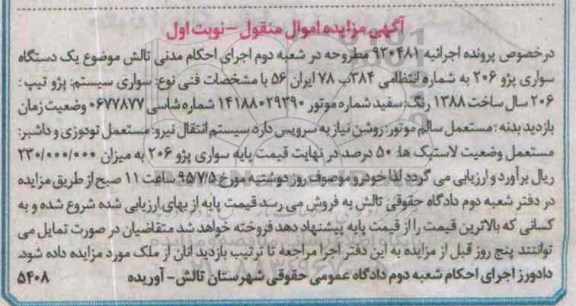 آگهی مزایده اموال منقول - نوبت اول
درخصوص پرونده اجرائیه ۹۲۰۴۸۱ مطروحه در شعبه دوم اجرای احکام مدنی تالش موضوع یک دستگاه
سواری پژو ۲۰۶ به شماره انتظامی ۳۸۴ب ۷۸ ایران ۵۶ با مشخصات فنی نوع: سواری سیستم: پژو تیپ:
۲۰۶ سال ساخت ۱۳۸۸ رنگ: سفید شماره موتور ۱۴۱۸۸۰۲۹۳۹۰ شماره شاسی ۰۶۷۷۸۷۷ وضعیت زمان
بازدید بدنه: مستعمل سالم موتور: روشن نیاز به سرویس دارد سیستم انتقال نیرو: مستعمل تودوزی و داشبر:
مستعمل وضعیت لاستیک ها: ۵۰ درصد در نهایت قیمت پایه سواری پژو ۲۰۶ به میزان ۲۳۰/۰۰۰/۰۰۰
ریال برآورد و ارزیابی می گردد لذا خودرو موصوف روز دوشنبه مورخ ۹۵/۷/۵ ساعت ۱۱ صبح از طریق مزایده
در دفتر شعبه دوم دادگاه حقوقی تالش به فروش می رسد قیمت پایه از بهای ارزیابی شده شروع شده و به
کسانی که بالاترین قیمت را از قیمت پایه پیشنهاد دهد فروخته خواهد شد متقاضیان در صورت تمایل می
توانند پنج روز قبل از مزایده به این دفتر اجرا مراجعه تا ترتیب بازدید انان از ملک مورد مزایده داده شود.
دادورز اجرای احکام شعبه دوم دادگاه عمومی حقوقی شهرستان تالش - آوریده ۵۴۰۸